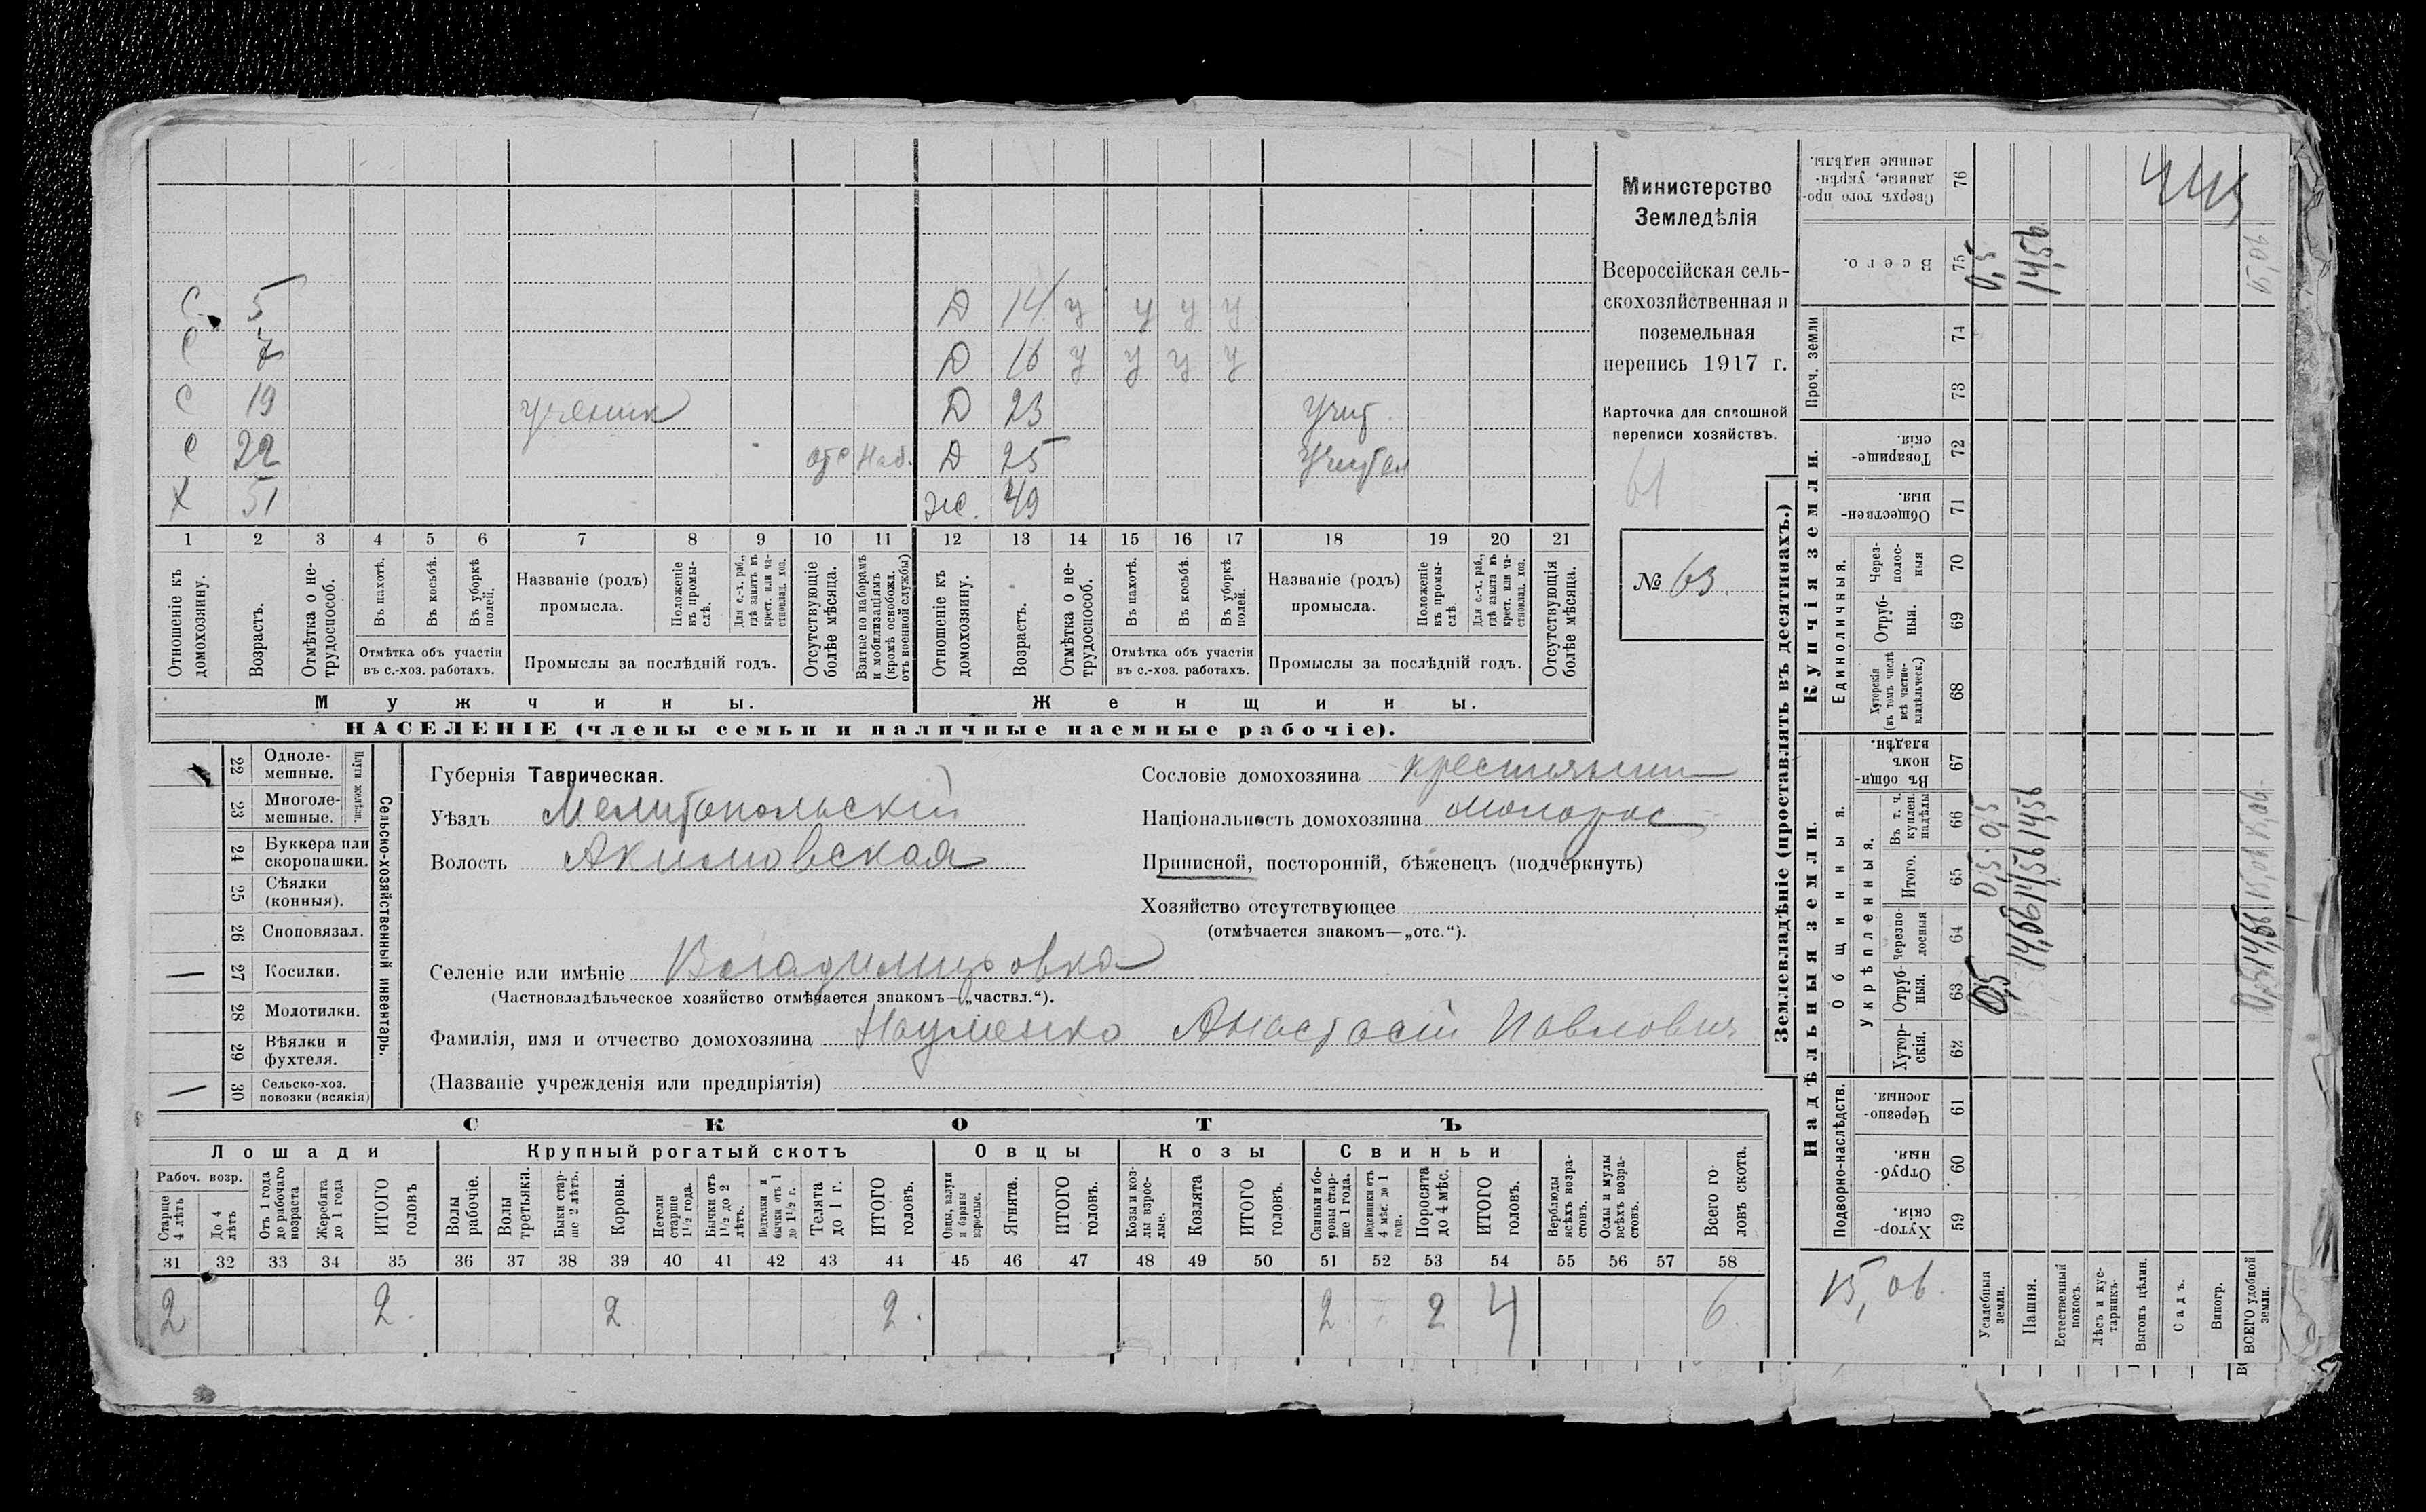 С 5 Д 14 у у у у
С 7 Д 16 у у у у
С 19 ученик Д 23 Учит.
С 22 отс Наб. Д 25 Учител
Х 51 Ж. 49
1 2 3 4 5 6 7 8 9 10 11 12 13 14 15 16 17 18 19 20 21
Отношеніе къ домохозяину.
Возрастъ.
Отмѣтка о не-трудоспособ.
Въ пахотѣ.
Въ косьбѣ.
Въ уборкѣ полей.
Отмѣтка объ участіи въ с.-хоз. работахъ.
Названіе (родъ) промысла.
Положеніе въ промы-слѣ.
Для с.-х. раб., гдѣ занятъ въ крест. или ча-стновлад. хоз.
Промыслы за послѣдній годъ.
Отсутствующіе болѣе мѣсяца.
Взятые по наборамъ и мобилизаціямъ (кромѣ освобожд. отъ военной службы)
Отношеніе къ домохозяину.
Возрастъ.
Отмѣтка о не-трудоспособ.
Въ пахотѣ.
Въ косьбѣ.
Въ уборкѣ полей.
Отмѣтка объ участіи въ с.-хоз. работахъ.
Названіе (родъ) промысла.
Положеніе въ промы-слѣ.
Для с.-х. раб., гдѣ занята въ крест. или ча-стновлад. хоз.
Промыслы за послѣдній годъ.
Отсутствующія болѣе мѣсяца.
Мужчины. Женщины.
НАСЕЛЕНІЕ (члены семьи и наличные наемные рабочіе).
Министерство
Земледѣлія
Всероссійская сель-
скохозяйственная и
поземельная
перепись 1917 г.
Карточка для сплошной
переписи хозяйствъ.
61
№ 63.
22 Одноле-мешные.
23 Многоле-мешные.
Плуги желѣзн.
24 Буккера или скоропашки.
25 Сѣялки (конныя).
26 Сноповязал.
27 Косилки.
28 Молотилки.
29 Вѣялки и фухтеля.
30 Сельско-хоз. повозки (всякія)
Сельско-хозяйственный инвентарь.
Губернія Таврическая.
Уѣздъ Мелитопольскій
Волость Акимовская
Сословіе домохозяина крестьянин
Національность домохозяина малорос
Приписной, посторонній, бѣженецъ (подчеркнуть)
Хозяйство отсутствующее
(отмѣчается знакомъ—„отс.“).
Селеніе или имѣніе Владимировка
(Частновладѣльческое хозяйство отмѣчается знакомъ—„частвл.“).
Фамилія, имя и отчество домохозяина Науменко Анастасій Павлович
(Названіе учрежденія или предпріятія)
СКОТЪ
Лошади Крупный рогатый скотъ Овцы Козы Свиньи
Рабоч. возр.
Старше 4 лѣтъ
До 4 лѣтъ
Отъ 1 года до рабочаго возраста
Жеребята до 1 года
ИТОГО головъ
Волы рабочіе.
Волы третьяки.
Быки стар-ше 2 лѣтъ.
Коровы.
Нетели старше 1½ года.
Бычки отъ 1½ до 2 лѣтъ.
Подтелки и бычки отъ 1 до 1½ г.
Телята до 1 г.
ИТОГО головъ.
Овцы, валухи и бараны взрослые.
Ягнята.
ИТОГО головъ.
Козы и коз-лы взрос-лые.
Козлята
ИТОГО головъ.
Свиньи и бо-ровы стар-ше 1 года.
Подсвинки отъ 4 мѣс. до 1 года.
Поросята до 4 мѣс.
ИТОГО головъ.
Верблюды всѣхъ возра-стовъ.
Ослы и мулы всѣхъ возра-стовъ.
Всего го-ловъ скота.
31 32 33 34 35 36 37 38 39 40 41 42 43 44 45 46 47 48 49 50 51 52 53 54 55 56 57 58
2 2. 2 2. 2 2 4 6
Землевладѣніе (проставлять въ десятинахъ.)
Купчія земли.
Надѣльныя земли.
Сверхъ того про-данные, укрѣп-ленные надѣлы. 76
445
Всего. 75 0,5 14,56 15,06
Проч. земли 74 73
Товарище-скія. 72
Обществен-ныя. 71
Единоличныя.
Через-полос-ныя 70
Отруб-ныя. 69
Хуторскія (въ томъ числѣ всѣ частно-владѣльческ.) 68
Общинныя.
Въ общин-номъ владѣн. 67
Укрѣпленныя.
Въ т. ч. куплен. надѣлы 66 0,5 14,56 15,06
Итого. 65 0,5 14,56 15,06
Черезпо-лосныя 64 14,56 14,56
Отруб-ныя. 63 0,5 0,5
Хутор-скія. 62
Подворно-наслѣдств.
Черезпо-лосныя. 61
Отруб-ныя. 60
Хутор-скія. 59
15,06.
Усадебныя земли.
Пашня.
Естественный покосъ.
Лѣсъ и кус-тарникъ.
Выгонъ цѣлин.
Садъ.
Виногр.
ВСЕГО удобной земли.